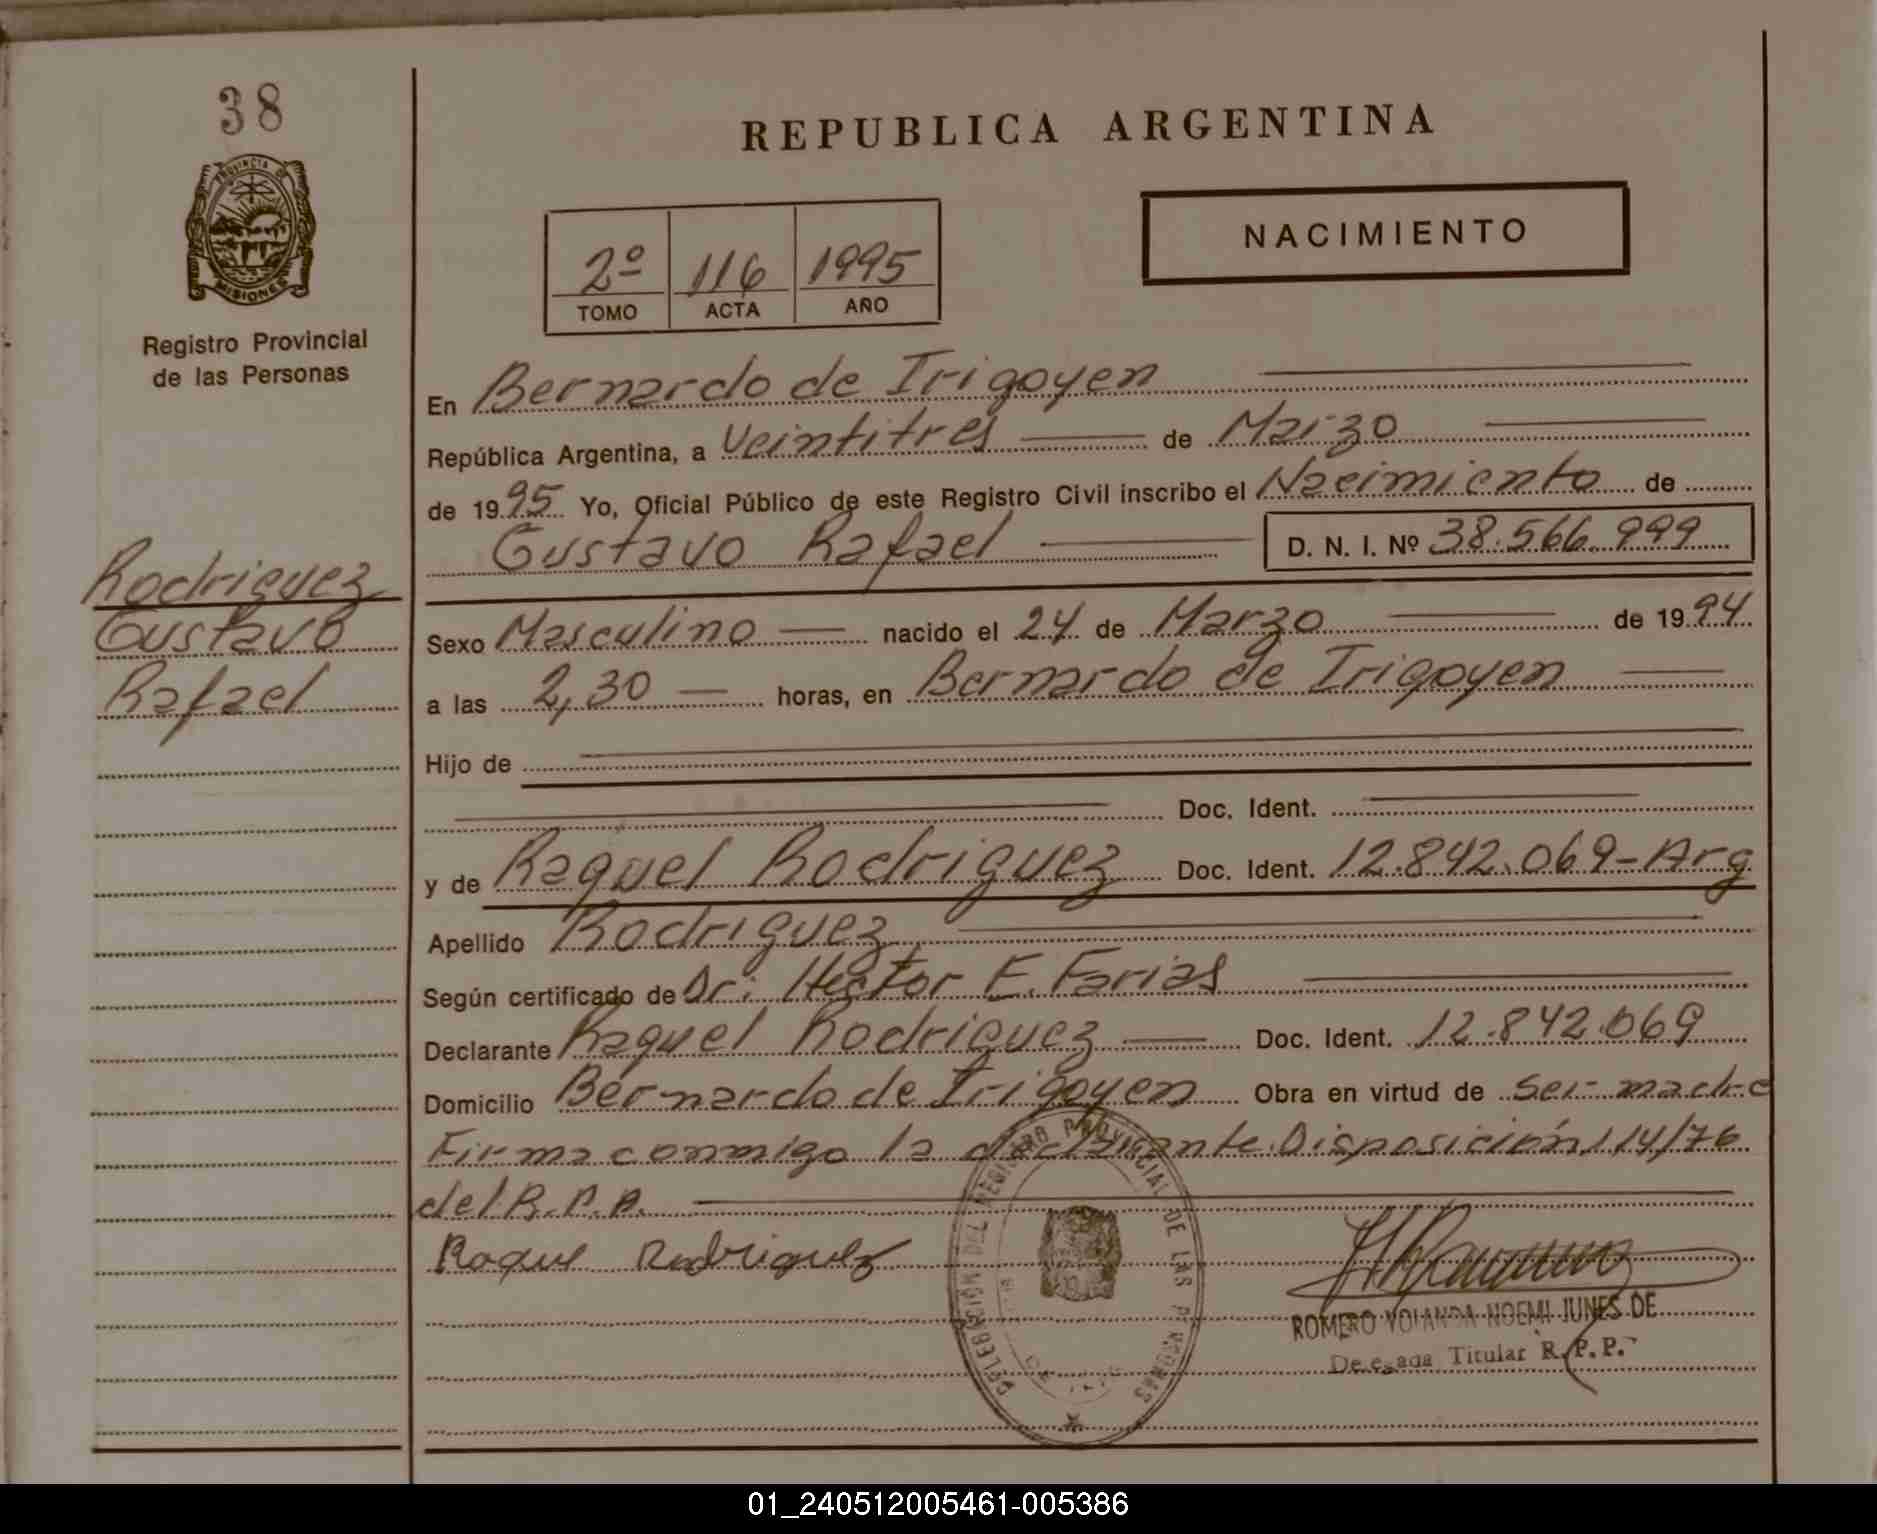 38
PROVINCIA DE
MISIONES
Registro Provincial
de las Personas
Rodriguez
Gustavo
Rafael
REPUBLICA ARGENTINA
NACIMIENTO
2º 116 1995
TOMO ACTA AÑO
En Bernardo de Irigoyen
República Argentina, a Veintitres de Marzo
de 1995 Yo, Oficial Público de este Registro Civil inscribo el Nacimiento de
Gustavo Rafael D. N. I. Nº 38.566.999
Sexo Masculino nacido el 24 de Marzo de 1994
a las 2,30 horas, en Bernardo de Irigoyen
Hijo de
Doc. Ident.
y de Raquel Rodriguez Doc. Ident. 12.842.069-Arg
Apellido Rodriguez
Según certificado de Dr: Hector E. Farias
Declarante Raquel Rodriguez Doc. Ident. 12.842.069
Domicilio Bernardo de Irigoyen Obra en virtud de ser madre
Firma conmigo la declarante. Disposición 114/76
del R.P.P.
Raque Rodriguez
DELEGACION DEL REGISTRO PROVINCIAL DE LAS PERSONAS
ROMERO YOLANDA NOEMI JUNES DE
Delegada Titular R.P.P.
01_240512005461-005386